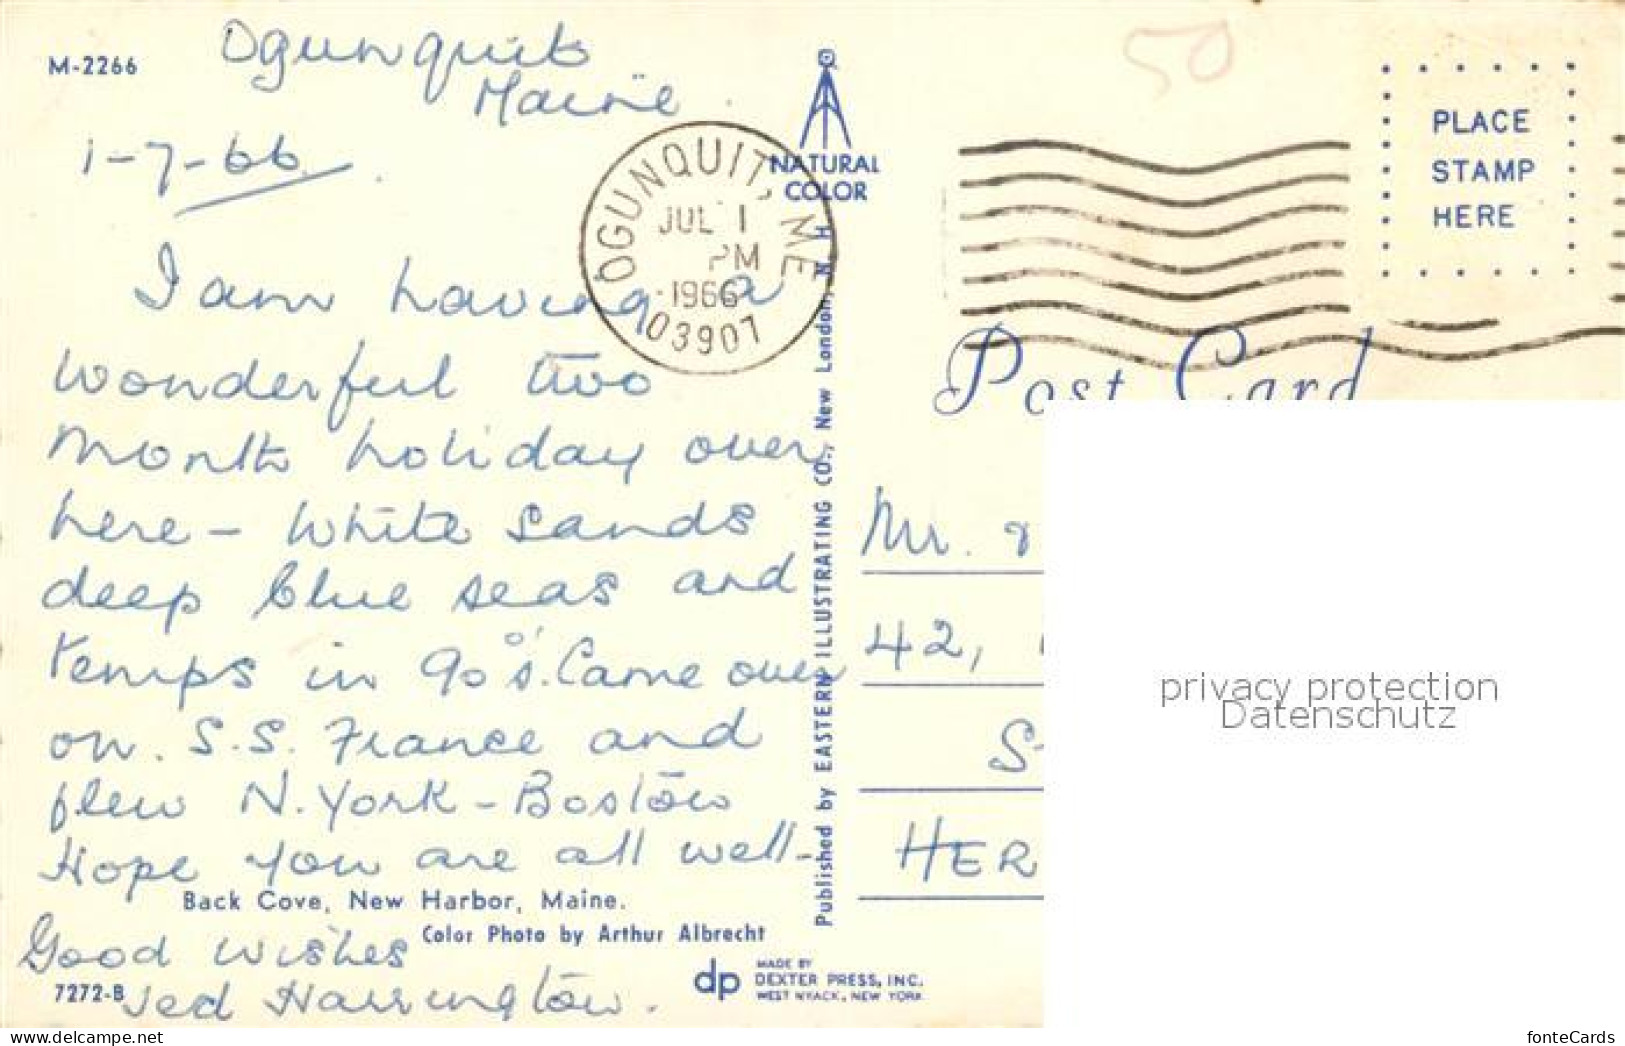 M-2266
Ogunquit
Maine.
1-7-66.
I am having a
wonderful two
month holiday over
here – white sands
deep blue seas and
temps in 90°s. Came over
on. S.S. France and
flew N. York – Boston
Hope you are all well –
Back Cove, New Harbor, Maine.
Color Photo by Arthur Albrecht
Good wishes
7272-B
Ted Harrington.
NATURAL
COLOR
OGUNQUIT, ME
JUL 1
PM
1966
03907
Published by EASTERN ILLUSTRATING CO., New London, N. H.
dp
MADE BY
DEXTER PRESS, INC.
WEST NYACK, NEW YORK
50
PLACE
STAMP
HERE
Post Card
Mr. &
42,
S
HER
privacy protection
Datenschutz
www.delcampe.net
fonteCards